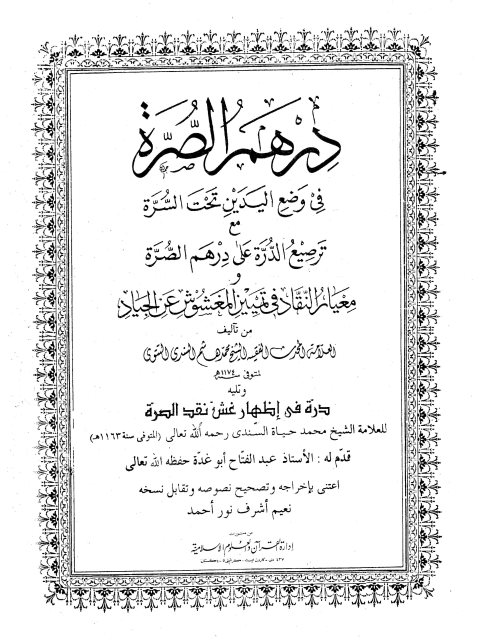 دِرهَمُ الصُّرَّة
فِي وَضعِ اليَدَينِ تَحتَ السُّرَّة
مع
تَرصِيعُ الدُّرَّة عَلى دِرهَمِ الصُّرَّة
و
مِعيَارُ النُّقَّاد فِي تَميِيزِ المَغشُوشِ عَنِ الجِيَاد
من تأليف
العلامة المحدث الفقيه الشيخ محمد هاشم السندي التتوي
المتوفى سنة ١١٧٤هـ
ويليه
درة في إظهار غش نقد الصرة
للعلامة الشيخ محمد حياة السندى رحمه الله تعالى (المتوفى سنة ١١٦٣هـ)
قدّم له : الأستاذ عبد الفتاح أبو غدّة حفظه الله تعالى
اعتنى بإخراجه وتصحيح نصوصه وتقابل نسخه
نعيم أشرف نور أحمد
من منشورات
إدارة القرآن والعلوم الإسلامية